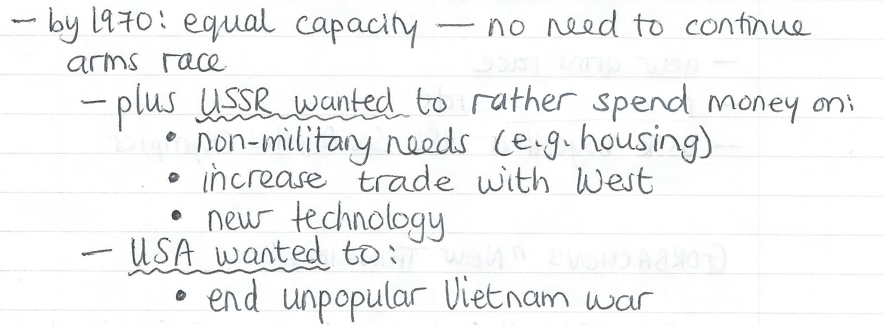 – by 1970: equal capacity – no need to continue
arms race
– plus USSR wanted to rather spend money on:
• non-military needs (e.g. housing)
• increase trade with West
• new technology
– USA wanted to:
• end unpopular Vietnam war